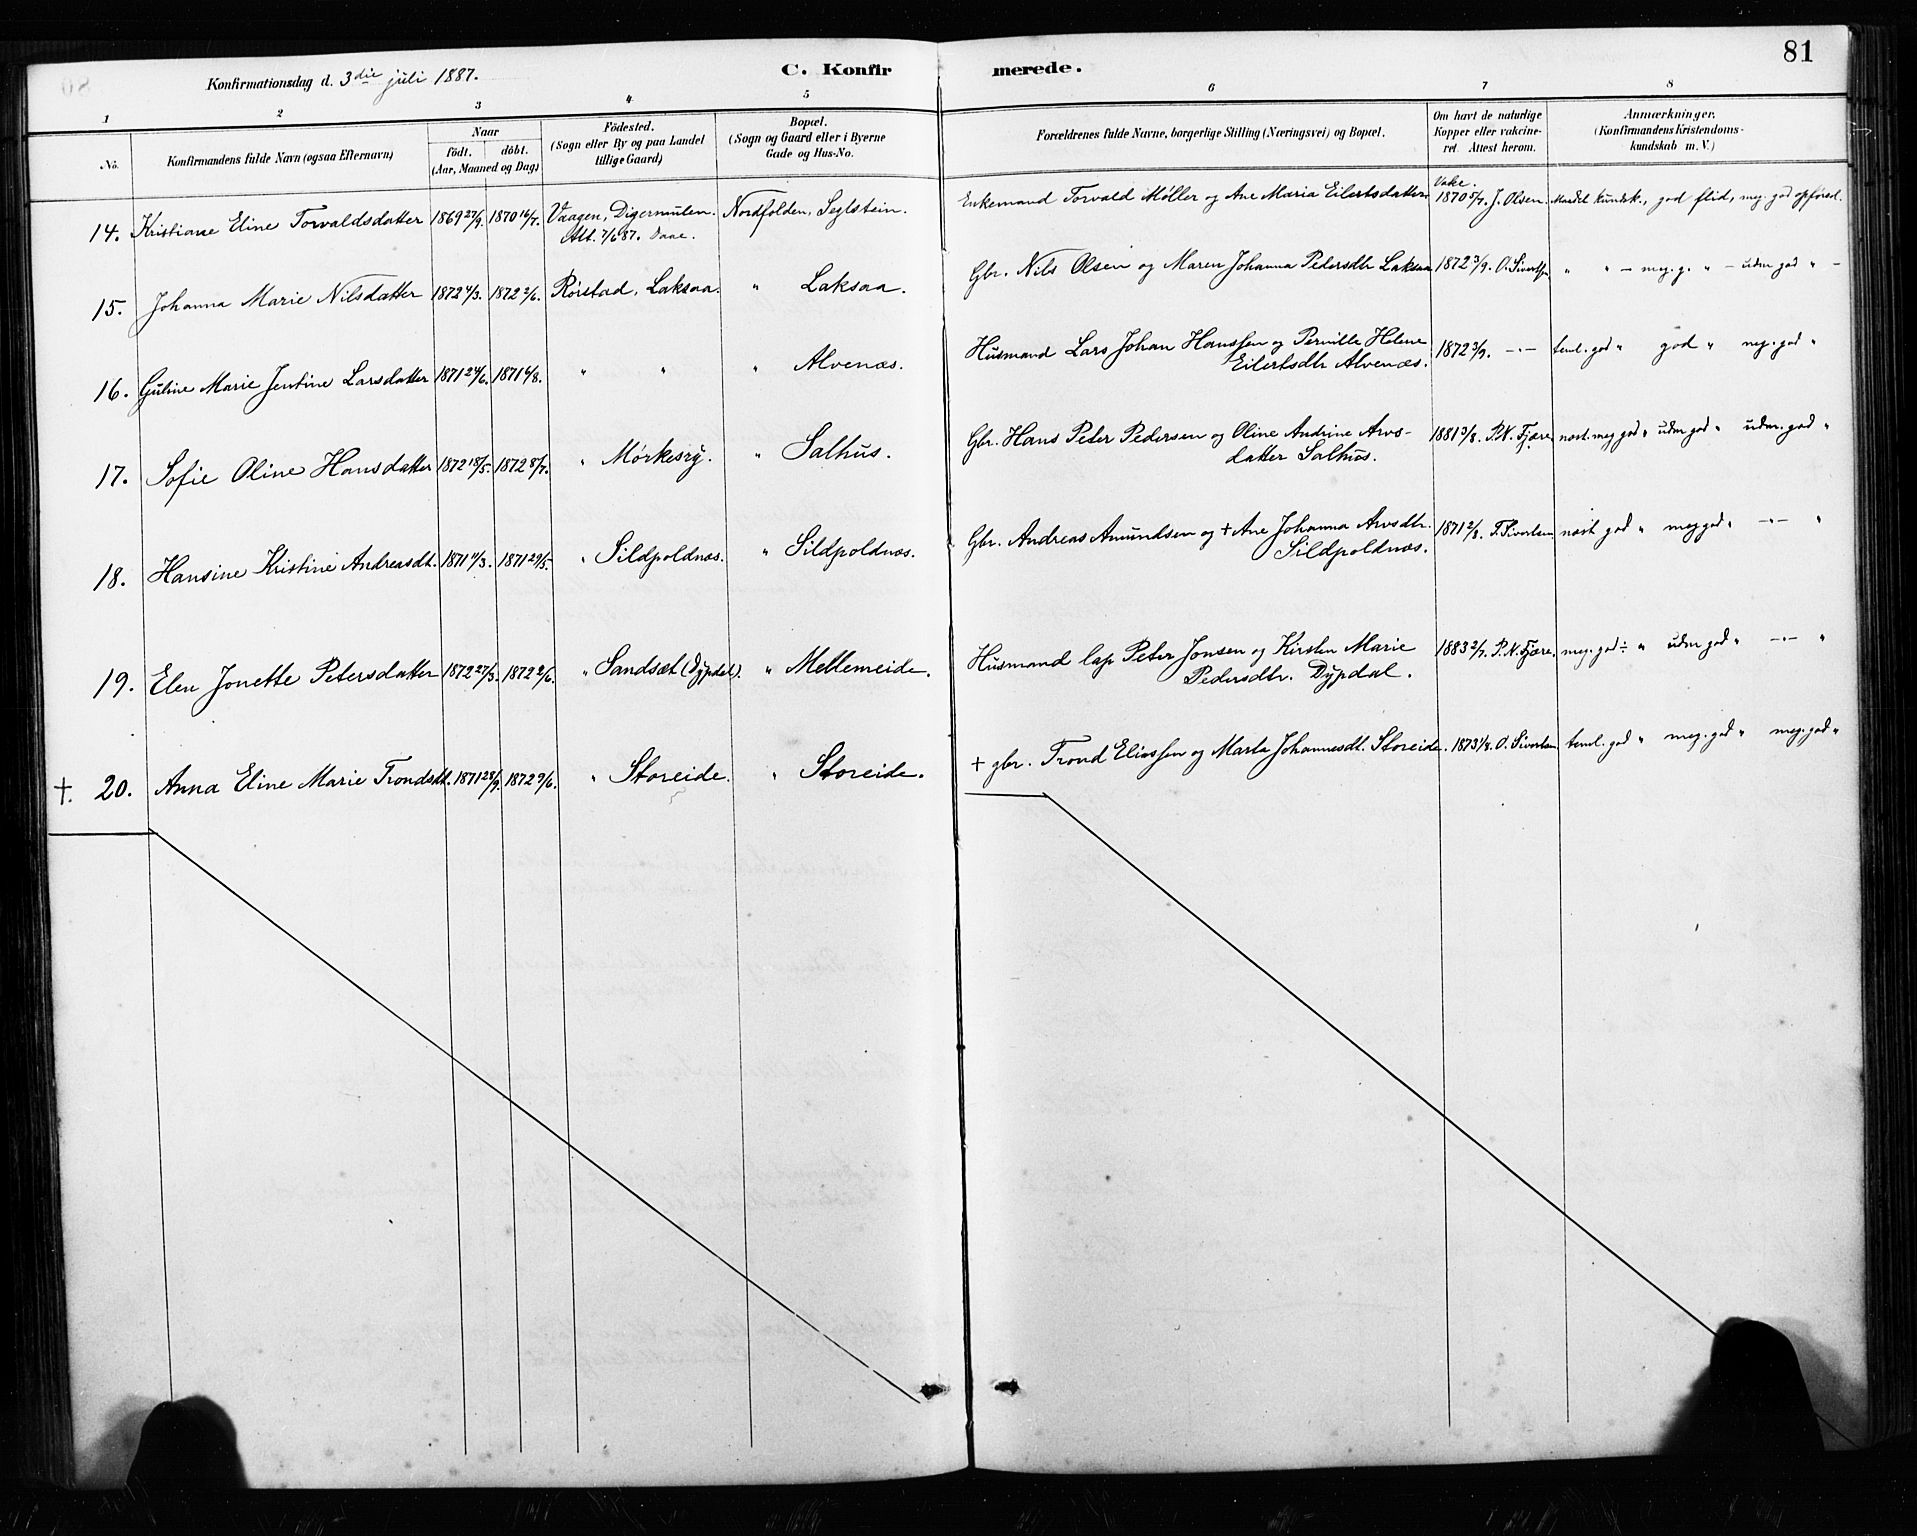 81
Konfirmationsdag d. 3die juli 1887.
C. Konfirmerede.
1 2 3 4 5 6 7 8
No.
Konfirmandens fulde Navn (ogsaa Efternavn)
Naar
födt. döbt.
(Aar, Maaned og Dag)
Födested.
(Sogn eller By og paa Landet
tillige Gaard)
Bopæl.
(Sogn og Gaard eller i Byerne
Gade og Hus-No.
Forældrenes fulde Navne, borgerlige Stilling (Næringsvei) og Bopæl.
Om havt de naturlige
Kopper eller vakcine-
ret. Attest herom.
Anmærkninger.
(Konfirmandens Kristendoms-
kundskab m. V.)
14. Kristiane Eline Torvaldsdatter 1869 27/9. 1870 16/7. Vaagen, Digermulen. Nordfolden, Seglstein. Enkemand Torvald Møller og Ane Maria Eilertsdatter Vake. 1870 5/7. J. Olsen. Maadel. kundsk., god flid, meg. god opførsel.
Att. 7/6 87. Daae.
15. Johanna Marie Nilsdatter 1872 4/3. 1872 2/6. Rørstad, Laksaa. " Laksaa. Gbr. Nils Olsen og Maren Johanna Pedersdtr Laksaa 1872 3/9. O. Sivertsen " " – meg. g. " – udm god " –
16. Guline Marie Jentine Larsdatter 1871 24/6. 1871 6/8. " " " Alvenæs. Husmand Lars Johan Hanssen og Pernille Helene 1872 3/9. –"– teml. god " god " meg. god "
Eilertsdtr Alvenæs.
17. Sofie Oline Hansdatter 1872 18/5. 1872 8/7. " Mørkesry. " Salhus. Gbr. Hans Peter Pedersen og Oline Andrine Arvs- 1881 3/8. P. N. Fjære. nost. meg god " udm god " udm. god "
datter Salhus.
18. Hansine Kristine Andreasdt. 1871 11/3. 1871 29/5. " Sildpoldnæs. " Sildpoldnæs. Gbr. Andreas Amundsen og + Ane Johanna Arvsdtr. 1871 2/8. T. Sivertsen nost god " meg god " –"– "
Sildpoldnæs.
19. Elen Jonette Petersdatter 1872 27/3. 1872 2/6. " Sandsæt (Dypdal). " Mellemeide. Husmand lap Peter Jonsen og Kirsten Marie 1883 2/7. P. N. Fjære. meg. god ÷ " udm god " –"– "
Pedersdtr. Dypdal.
+. 20. Anna Eline Marie Trondsdt. 1871 28/9. 1872 9/6. " Storeide. " Storeide. + gbr. Trond Eliassen og Marta Johannesdt. Storeide. 1873 1/8. O. Sivertsen teml. god " meg. god " meg. god "